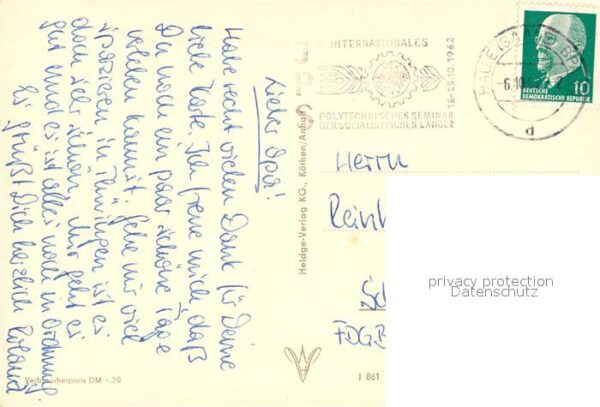 Lieber Opa!
Habe recht vielen Dank für Deine
liebe Karte. Ich freue mich, daß
Du noch ein paar schöne Tage
verleben kannst. Gehe nur viel
spazieren in Thüringen ist es
doch sehr schön. Mir geht es
gut und es ist alles noch in Ordnung.
Es grüßt Dich herzlich Roland
Verbraucherpreis DM -.20
Heldge-Verlag KG., Köthen/Anhalt
J 861
JPS
II. INTERNATIONALES
POLYTECHNISCHES SEMINAR
DER SOZIALISTISCHEN LÄNDER
16-25.10.1962
HALLE (SAALE) BPA
-6.10.
d
DEUTSCHE
DEMOKRATISCHE REPUBLIK
10
Herrn
Rein
FDGB
privacy protection
Datenschutz